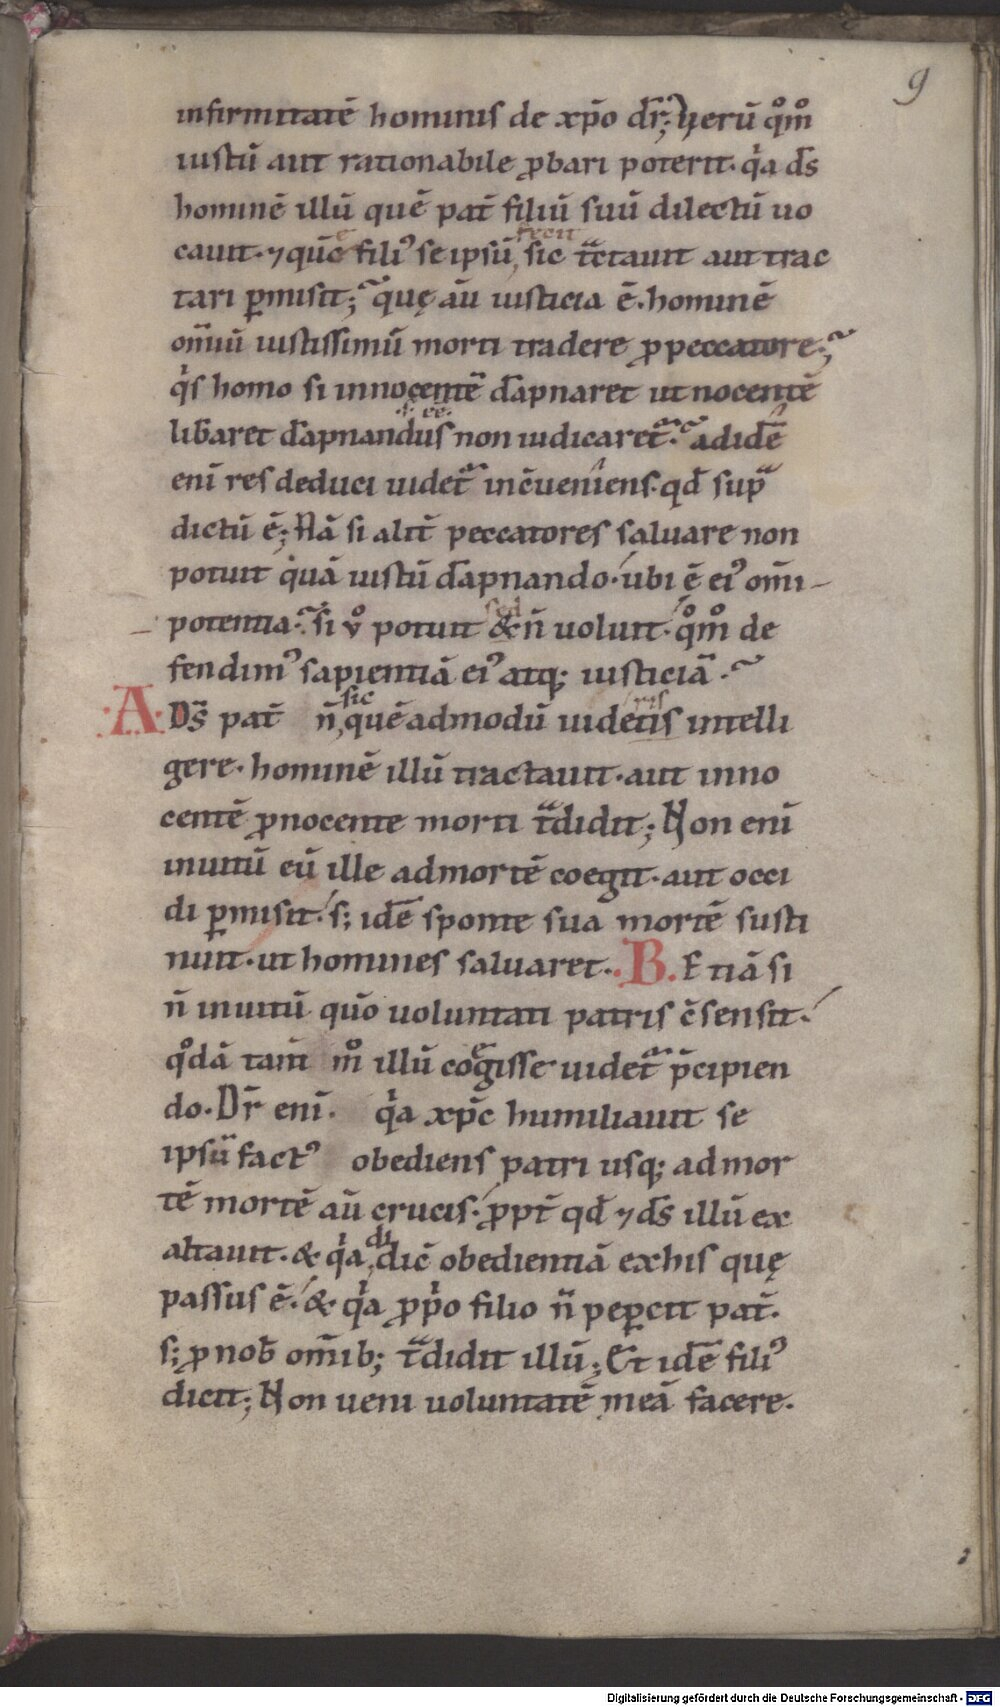 9
infirmitatē hominis de xp̄o dr̄; Verū qͦm
iustū aut rationabile ꝓbari poterit· qͥa d̄s
hominē illū quē pat̄ filiū suū dilectū uo
cauit· ⁊ quē filiꝰ se ipsū fecit, sic tͣctauit aut trac
tari ꝑmisit; quę aū iusticia ē· hominē
om̄iū iustissimū morti tradere ꝓ peccatore;
qͥs homo si innocentē dāpnaret ut nocentē
lib̄aret dāpnandus .i. ee. non iudicaret᷑· ad idē
eni̅ res deduci uidet᷑ inc̄ueniens· qd̄ supͣ
dictū ē; Nā si alit̄ peccatores saluare non
potuit qͥuā iustū dāpnando· ubi ē eiꝰ om̄i
potentia· si ṽ potuit sed & n̄ uoluit· qͦm de
fendimꝰ sapientiā eiꝰ atq; iusticiā·
·A· D̄s pat̄ n̄ sic, quēadmodū uidetis ris intelli
gere· hominē illū tractauit· aut inno
centē ꝓ nocente morti tͣdidit; Non eni̅
inuitū eū ille ad mortē coegit· aut occi
di ꝑmisit· s; idē sponte sua mortē susti
nuit· ut homines saluaret· ·B· Etiā si
n̄ inuitū quō uoluntati patris c̄sensit·
qͦdā tam̄ mͦ illū coegisse uidet᷑ p̄cipien
do· Dr̄ eni̅· qͥa xp̄c humiliauit se
ipsū factꝰ obediens patri usq; ad mor
tē mortē aū crucis· ꝓpt̄ qd̄ ⁊ d̄s illū ex
altauit· & qͥa di, dic̄ obedientiā ex his quę
passus ē· & qͥa ꝓpͥo filio n̄ peꝑcit pat̄·
s; ꝓ nob̄ om̄ib; tͣdidit illū; Et idē filiꝰ
dicit; Non ueni uoluntatē meā facere·
Digitalisierung gefördert durch die Deutsche Forschungsgemeinschaft - DFG